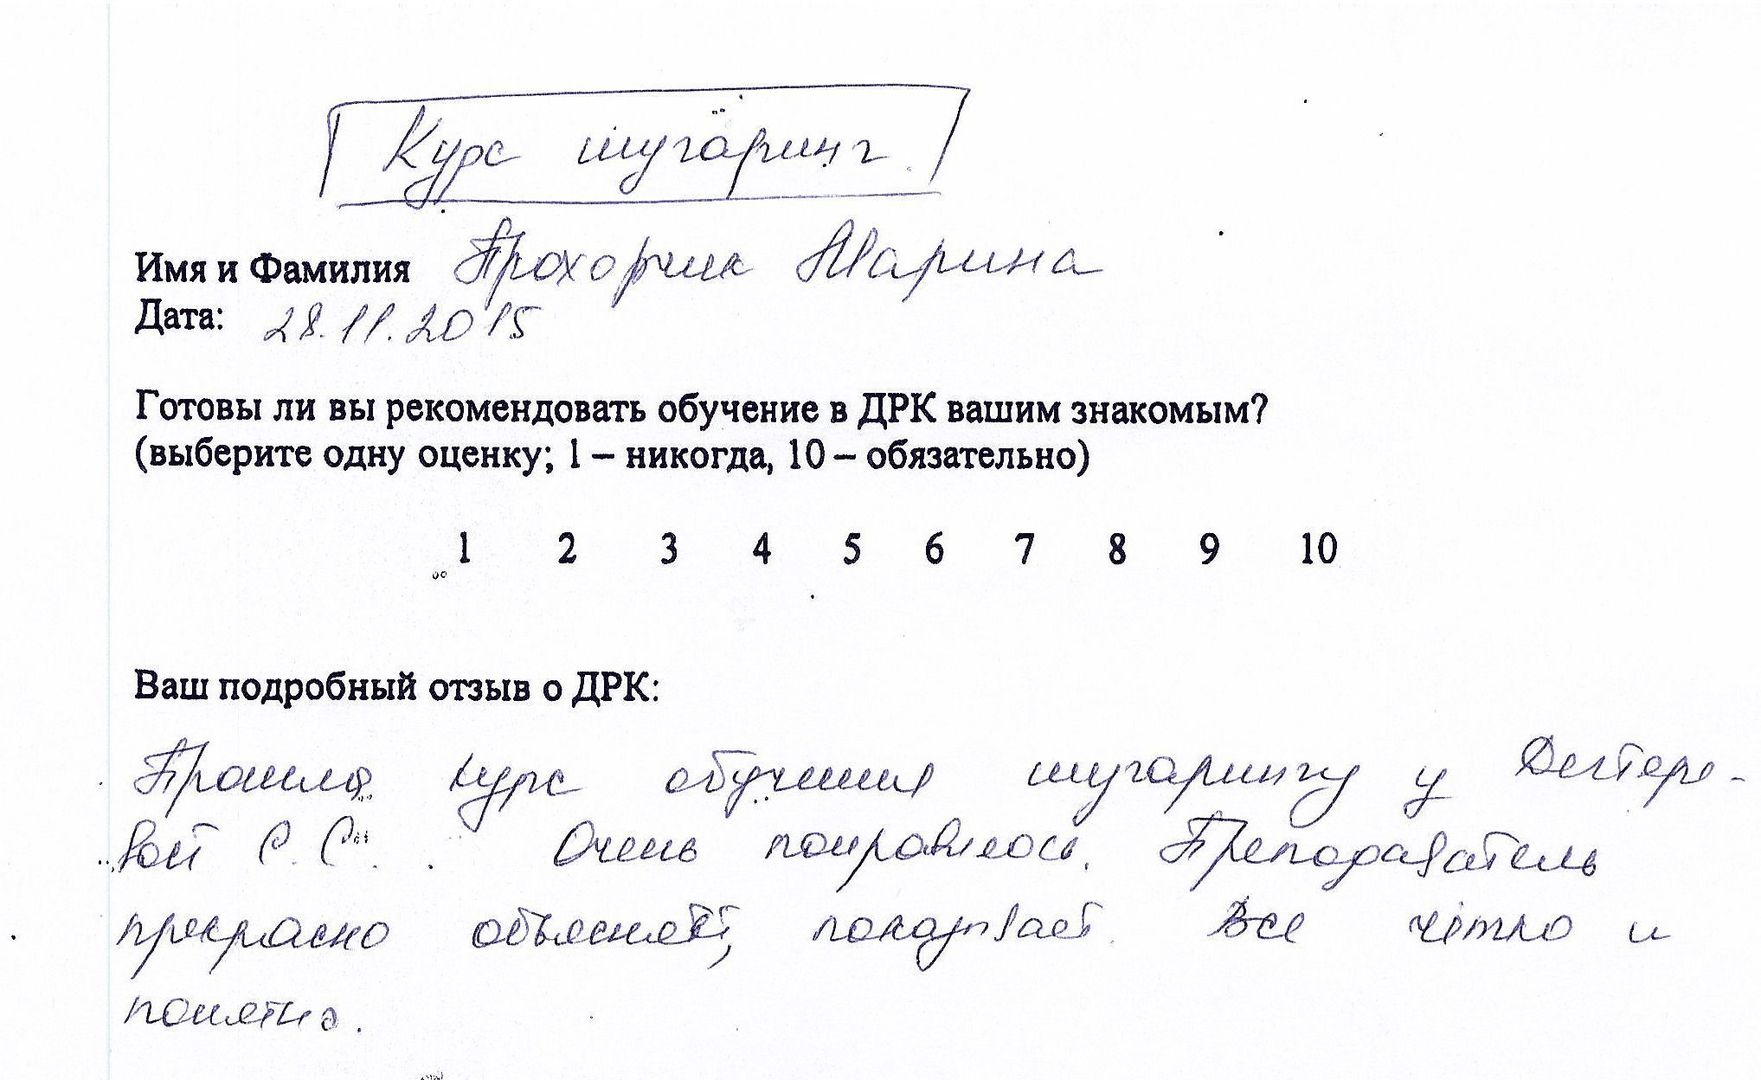 Курс шугаринг
Имя и Фамилия Прохорчик Марина
Дата: 28.11.2015
Готовы ли вы рекомендовать обучение в ДРК вашим знакомым?
(выберите одну оценку; 1 – никогда, 10 – обязательно)
1 2 3 4 5 6 7 8 9 10
Ваш подробный отзыв о ДРК:
Прошла курс обучения шугарингу у Дегтере-
вой С.С. Очень понравилось. Преподаватель
прекрасно объясняет, показывает. Все чётко и
понятно.